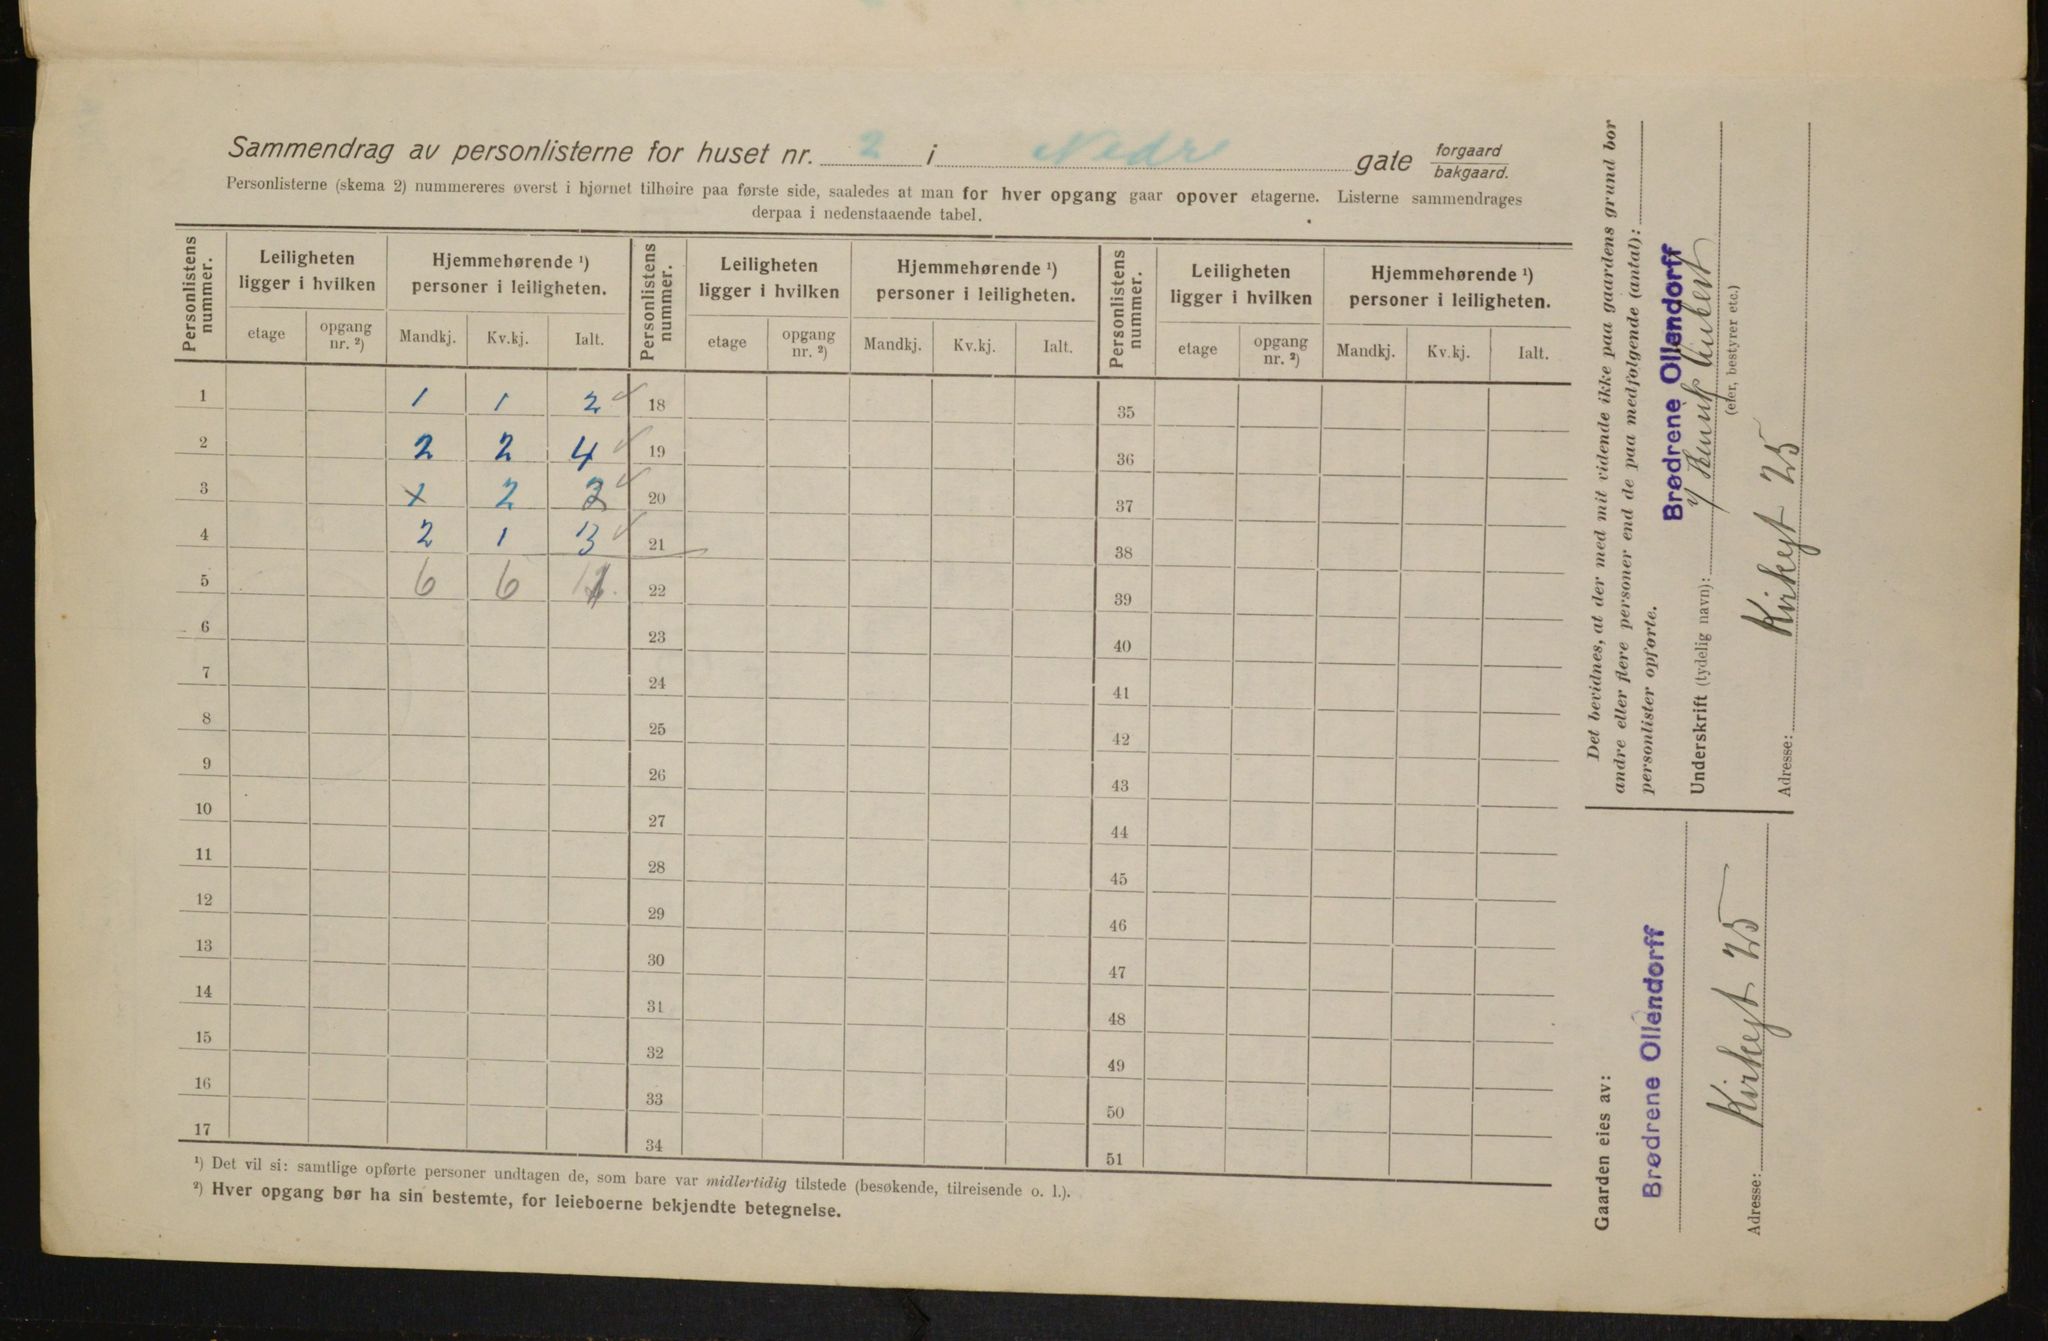 Sammendrag av personlisterne for huset nr. 2 i Nedre gate forgaard bakgaard.
Personlisterne (skema 2) nummereres øverst i hjørnet tilhøire paa første side, saaledes at man for hver opgang gaar opover etagerne. Listerne sammendrages
derpaa i nedenstaaende tabel.
Personlistens nummer. Leiligheten ligger i hvilken Hjemmehørende ¹) personer i leiligheten. Personlistens nummer. Leiligheten ligger i hvilken Hjemmehørende ¹) personer i leiligheten. Personlistens nummer. Leiligheten ligger i hvilken Hjemmehørende ¹) personer i leiligheten.
etage opgang nr. ²) Mandkj. Kv.kj. Ialt. etage opgang nr. ²) Mandkj. Kv.kj. Ialt. etage opgang nr. ²) Mandkj. Kv.kj. Ialt.
1 1 1 2 18 35
2 2 2 4 19 36
3 x 2 2 20 37
4 2 1 3 21 38
5 6 6 22 39
6 23 40
7 24 41
8 25 42
9 26 43
10 27 44
11 28 45
12 29 46
13 30 47
14 31 48
15 32 49
16 33 50
17 34 51
¹) Det vil si: samtlige opførte personer undtagen de, som bare var midlertidig tilstede (besøkende, tilreisende o. l.).
²) Hver opgang bør ha sin bestemte, for leieboerne bekjendte betegnelse.
Det bevidnes, at der med mit vidende ikke paa gaardens grund bor
andre eller flere personer end de paa medfølgende (antal):
personlister opførte.
Brødrene Ollendorff
Underskrift (tydelig navn):
(eier, bestyrer etc.)
Adresse: Kirkegt 25
Gaarden eies av:
Brødrene Ollendorff
Adresse: Kirkegt 25